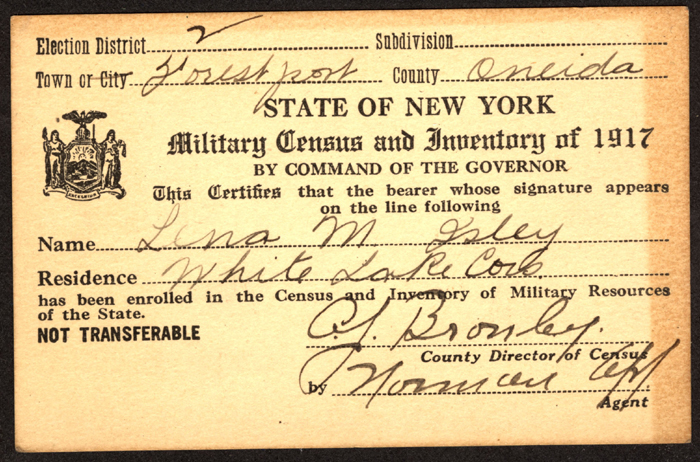 Election District 2 Subdivision
Town or City Forestport County Oneida
STATE OF NEW YORK
Military Census and Inventory of 1917
BY COMMAND OF THE GOVERNOR
This Certifies that the bearer whose signature appears
on the line following
Name Lena M Isley
Residence White Lake Cors
has been enrolled in the Census and Inventory of Military Resources
of the State.
NOT TRANSFERABLE
Bromley.
County Director of Census
by Norman
Agent